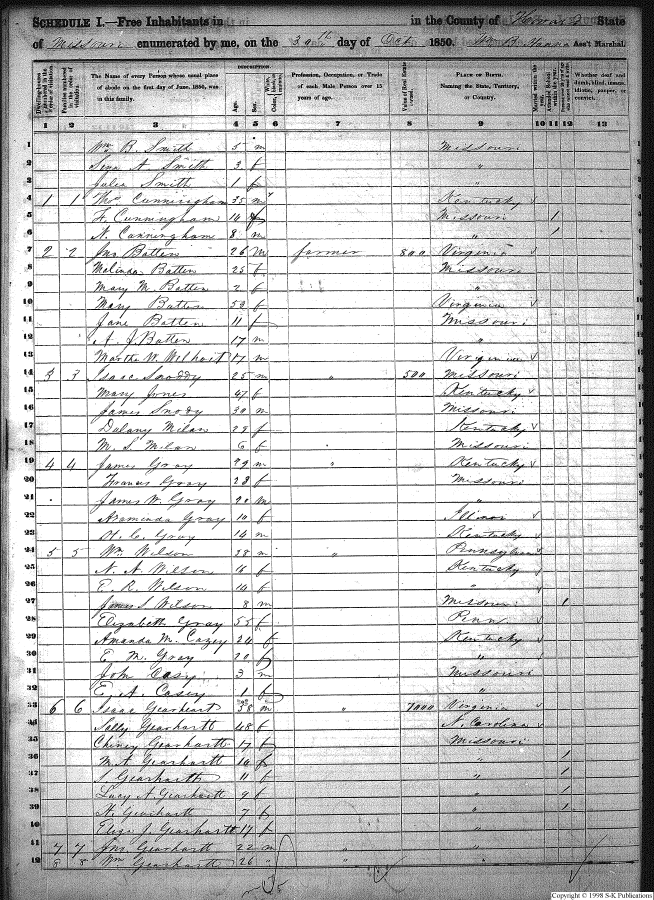 SCHEDULE I.—Free Inhabitants in in the County of Howard State
of Missouri enumerated by me, on the 30th day of Oct 1850. Wm B. Hanna Ass't Marshal.
DESCRIPTION.
The Name of every Person whose usual place of abode on the first day of June, 1850, was in this family.
Age.
Sex.
Profession, Occupation, or Trade of each Male Person over 15 years of age.
Value of Real Estate owned.
PLACE OF BIRTH.
Naming the State, Territory, or Country.
Whether deaf and dumb, blind, insane, idiotic, pauper, or convict.
1 2 3 4 5 6 7 8 9 10 11 12 13
1 Wm B. Smith 5 m Missouri
2 Sena A Smith 3 f "
3 Julia Smith 1 f "
4 1 1 Thos Cunningham 35 m Kentucky
5 F. Cunningham 10 f Missouri 1
6 N. Cunningham 8 m " 1
7 2 2 Jno Batten 26 m farmer 800 Virginia
8 Malinda Batten 25 f Missouri
9 Mary M. Batten 2 f "
10 Mary Batten 52 f Virginia
11 Jane Batten 11 f Missouri
12 A. J. Batten 17 m "
13 Martha W. 17 m Virginia
14 3 3 Isaac Snoddy 25 m " 500 Missouri
15 Mary Jones 47 f Kentucky
16 James Snody 30 m Missouri
17 Dulany Milan 28 f Kentucky
18 M. S. Milan 6 f Missouri
19 4 4 James Gray 29 m " Kentucky
20 Frances Gray 28 f Missouri
21 James W. Gray m "
22 Araminda Gray 10 f
23 Gray 14 m Kentucky
24 5 5 Wm Wilson 38 m " Pennsylvania
25 N. A. Wilson f Kentucky
26 E. R. Wilson 14 f "
27 James S. Wilson 8 m Missouri 1
28 Elizabeth Gray 55 f Penn
29 Amanda M. Cazey 24 f Kentucky
30 E. M. Gray 20 f "
31 John Casy 3 m Missouri
32 E. A. Casey 1 f "
33 6 6 Isaac Gearheart 38 m " 7000 Virginia
34 Sally Gearhartt 48 f N. Carolina
35 Chiney Gearhartt 17 f Missouri
36 M. A. Gearhartt 14 f " 1
37 S Gearhartt 11 f " 1
38 Lucy A Gearhartt 9 f " 1
39 N. Gearhartt 7 f " 1
40 Eliza J. Gearhartt 17 f "
41 7 7 Jno Gearhartt 22 m " "
42 8 8 Wm Gearhartt 26 " " "
Copyright © 1998 S-K Publications